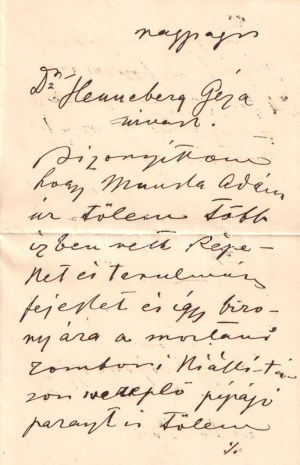 nagysgos
Dr Henneberg Géza
urnak.
Bizonyitom
hogy Munsla Adám
úr tőlem több
izben vett képe-
ket és tanulmány
fejeket és így bizo-
nyára a mostani
zombori kiállitá-
son szereplő pipázó
paraszt is tőlem
./.